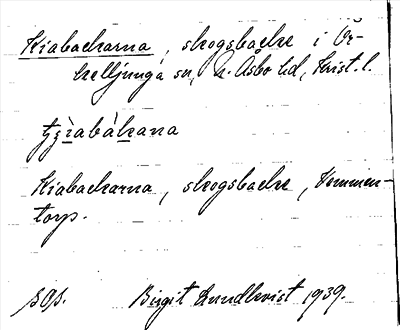 Kiabackarna, skogsbacke i Ör-
kelljunga sn, N. Åsbo hd, Krist. l.
Kiabackarna, skogsbacke, Vemmen-
torp.
s 95. Birgit Lundkvist 1939.